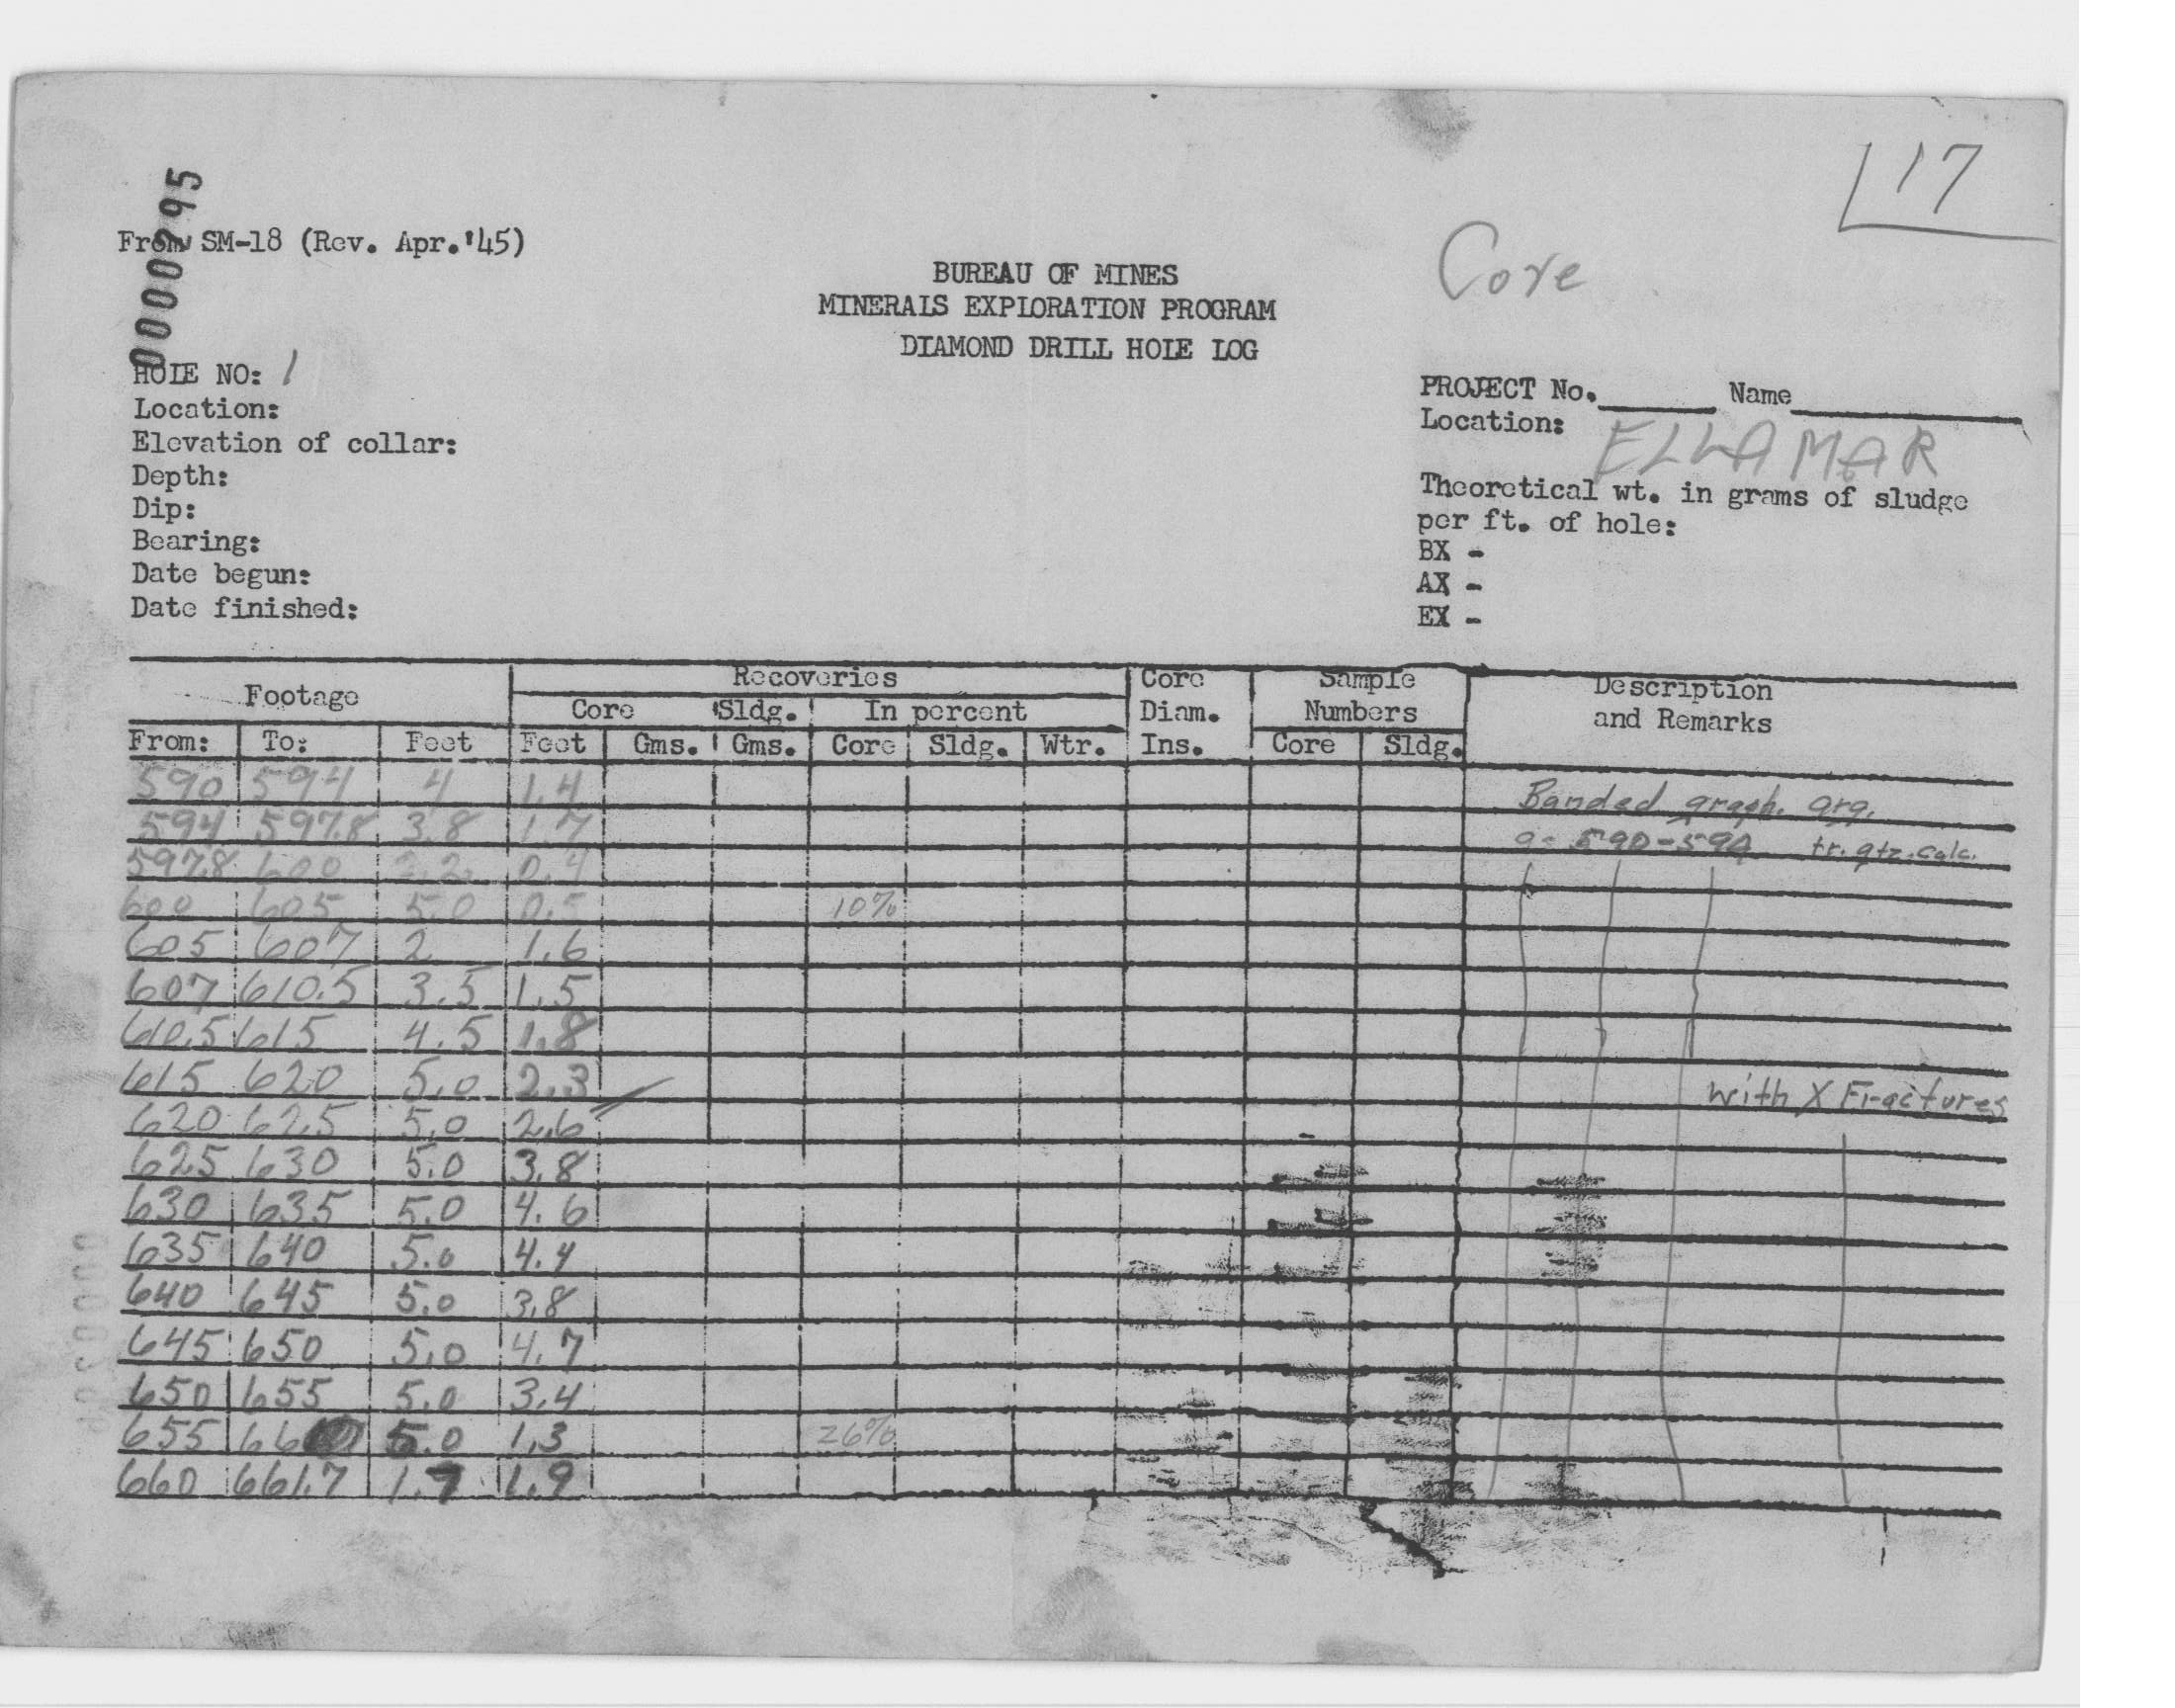 17
0000795
From SM-18 (Rev. Apr.'45)
Core
BUREAU OF MINES
MINERALS EXPLORATION PROGRAM
DIAMOND DRILL HOLE LOG
HOLE NO: 1
Location:
Elevation of collar:
Depth:
Dip:
Bearing:
Date begun:
Date finished:
PROJECT No. Name
Location: ELLAMAR
Theoretical wt. in grams of sludge
per ft. of hole:
BX -
AX -
EX -
Footage Recoveries Core Sample Description
Core Sldg. In percent Diam. Numbers and Remarks
From: To: Feet Feet Gms. Gms. Core Sldg. Wtr. Ins. Core Sldg.
590 594 4 1.4 Banded graph. arg.
594 597.8 3.8 1.7 590-594 tr. qtz. calc.
597.8 600 2.2 0.4
600 605 5.0 0.5 10%
605 607 2 1.6
607 610.5 3.5 1.5
610.5 615 4.5 1.8
615 620 5.0 2.3 with X Fractures
620 625 5.0 2.6
625 630 5.0 3.8
630 635 5.0 4.6
635 640 5.0 4.4
640 645 5.0 3.8
645 650 5.0 4.7
650 655 5.0 3.4
655 660 5.0 1.3 26%
660 661.7 1.7 1.9